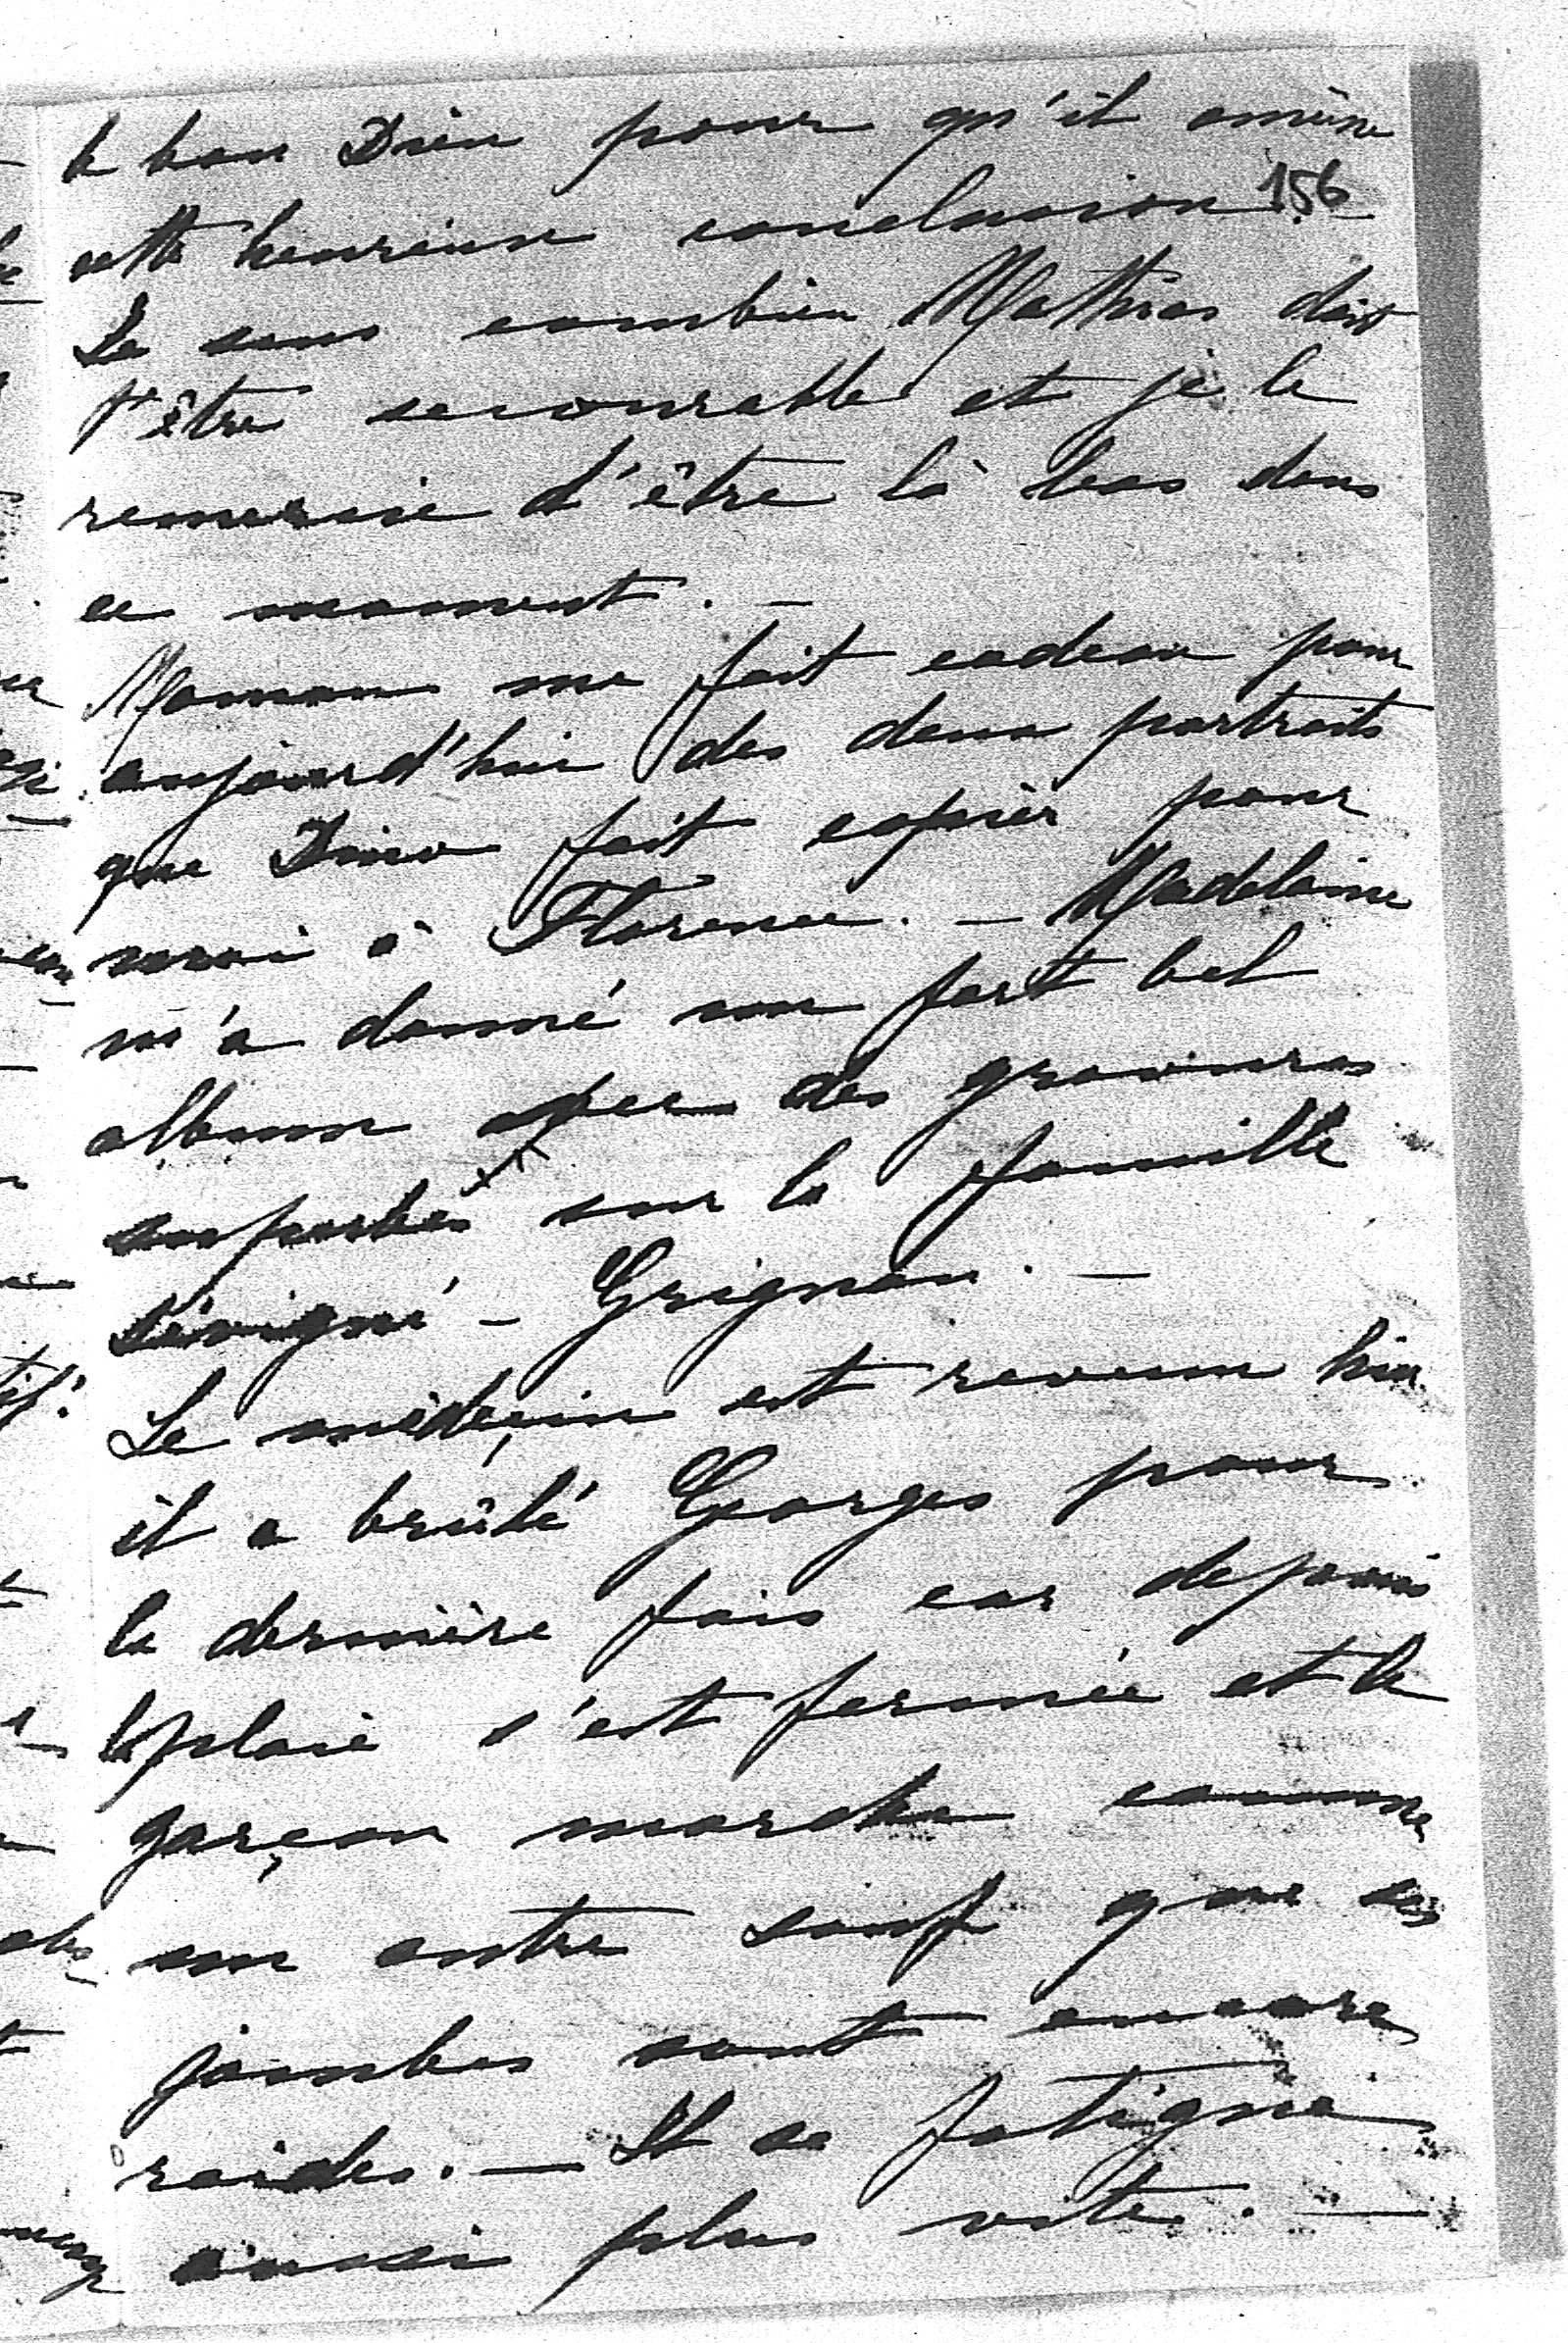 le bon Dieu pour qu'il amène
156
cette heureuse conclusion. —
Je sens combien Mathias doit
t'être secourable et je le
remercie d'être là bas dans
ce moment. —
Maman me fait cadeau pour
aujourd'hui des deux portraits
que Dino fait copier pour
moi à Florence. — Madeleine
m'a donné un fort bel
album avec des gravures
superbes sur la famille
Sévigné – Grignan. —
Le médecin est revenu hier
il a brûlé Georges pour
la dernière fois car depuis
la plaie s'est fermée et le
garçon marche comme
un autre sauf que ses
jambes sont encore
raides. — Il se fatigue
aussi plus vite. —